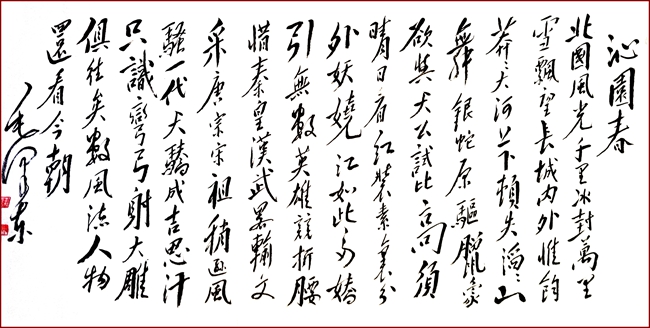 沁園春
北國風光千里冰封萬里
雪飄望長城內外惟餘
莽〻大河上下頓失滔〻山
舞銀蛇原驅臘象
欲與天公試比高須
晴日看紅裝素裹分
外妖嬈江如此多嬌
引無數英雄競折腰
惜秦皇漢武畧輸文
采唐宗宋祖稍遜風
騷一代天驕成吉思汗
只識彎弓射大雕
俱往矣數風流人物
還看今朝
毛澤東